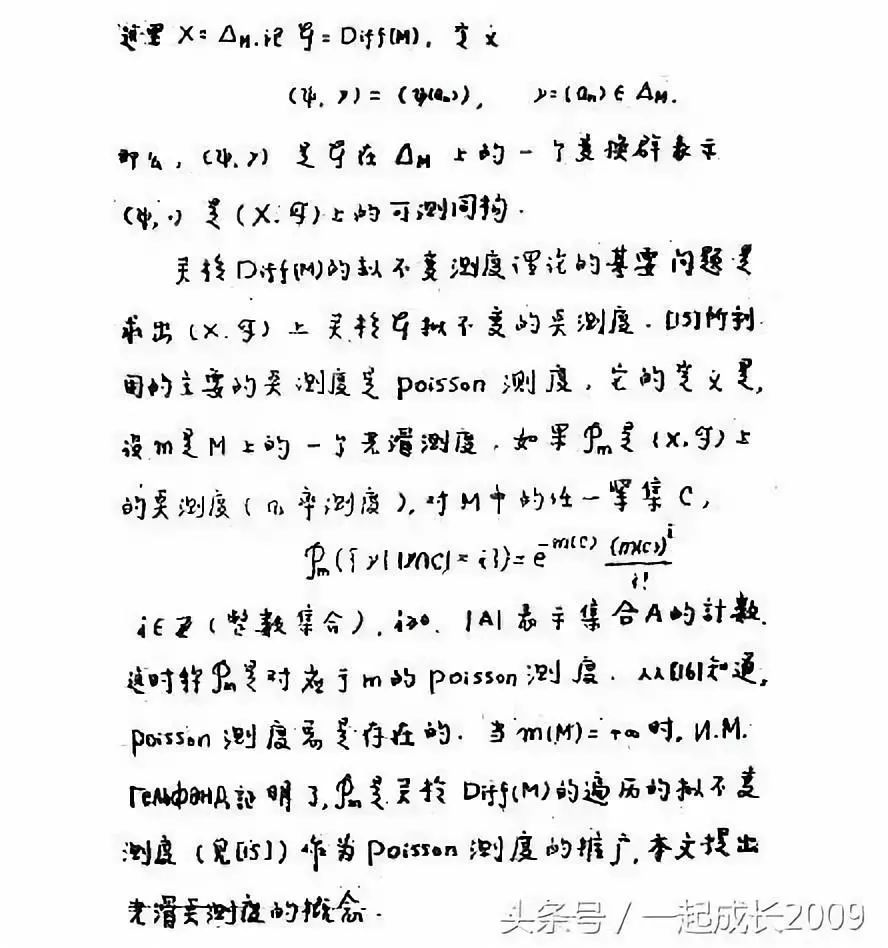 这里 X = Δ_M. 记 𝒢 = Diff(M), 定义
(ψ, γ) = (ψ(a_n)), γ = (a_n) ∈ Δ_M.
那么, (ψ, γ) 是 𝒢 在 Δ_M 上的一个变换群表示
(ψ, ·) 是 (X, 𝓕) 上的可测同构.
关於 Diff(M) 的拟不变测度理论的基要问题是
求出 (X, 𝓕) 上关於 𝒢 拟不变的 测度. [15] 所利
用的主要的 测度是 poisson 测度, 它的定义是,
设 m 是 M 上的一个光滑测度. 如果 𝒫_m 是 (X, 𝓕) 上
的 测度 (几率测度), 对 M 中的任一紧集 C,
𝒫_m({γ| |γ∩C| = i}) = e^{-m(C)} (m(C))^i / i!
i ∈ Z (整数集合), i≥0. |A| 表示集合 A 的計数.
这时称 𝒫_m 是对应于 m 的 poisson 测度. 从 [16] 知道,
poisson 测度 是存在的. 当 m(M) = +∞ 时, И.М.
Гельфанд 証明了, 𝒫_m 是关於 Diff(M) 的遍历的拟不变
测度 (见 [15]) 作为 poisson 测度的推广, 本文提出
光滑 测度的概念.
头条号 / 一起成长2009